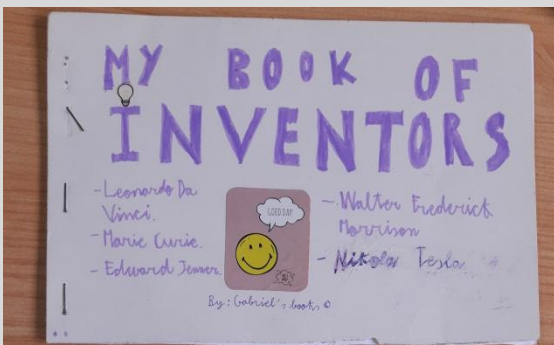 MY BOOK OF
INVENTORS
- Leonardo Da
Vinci.
- Marie Curie.
- Edward Jenner.
GOOD DAY
- Walter Frederick
Morrison
- Nikola Tesla
By: Gabriel's books ©